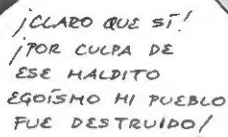 ¡CLARO QUE SÍ!
¡POR CULPA DE
ESE MALDITO
EGOÍSMO MI PUEBLO
FUE DESTRUIDO!